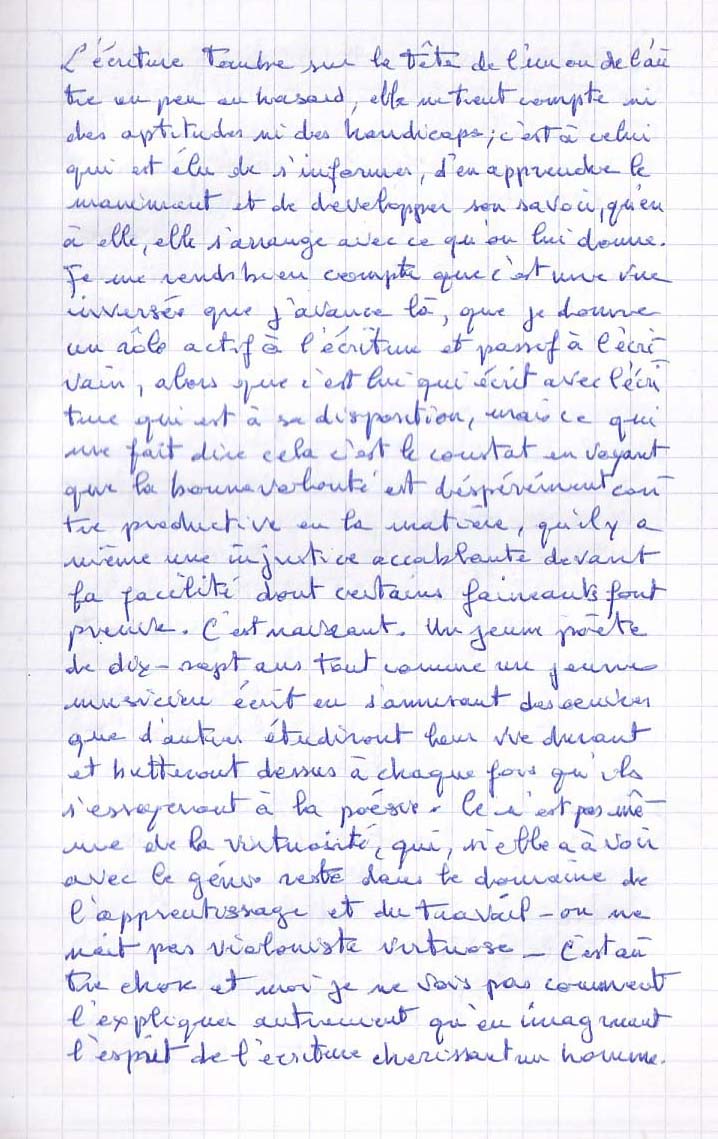 L'écriture tombe sur la tête de l'un ou de l'au
tre un peu au hasard, elle ne tient compte ni
des aptitudes ni des handicaps; c'est à celui
qui est élu de s'informer, d'en apprendre le
maniement et de developper son savoir, qu'en
à elle, elle s'arrange avec ce qu'on lui donne.
Je me rends bien compte que c'est une vue
inversée que j'avance là, que je donne
un rôle actif à l'écriture et passif à l'écri
vain, alors que c'est lui qui écrit avec l'écri
ture qui est à sa disposition, mais ce qui
me fait dire cela c'est le constat en voyant
que la bonne volonté est désépérément con
tre productive en la matière, qu'il y a
même une injustice accablante devant
la facilité dont certains faineants font
preuve. C'est naiseant. Un jeune poète
de dix-sept ans tout comme un jeune
musicien écrit en s'amusant des oeuvres
que d'autres étudiront leur vie durant
et butteront dessus à chaque fois qu'ils
s'essayeront à la poésie. Ce n'est pas mê
me de la virtuosité, qui, si elle a à voir
avec le génie reste dans le domaine de
l'apprentissage et du travail - on ne
nait pas violoniste virtuose - C'est au
tre chose et moi je ne vois pas comment
l'expliquer autrement qu'en imaginant
l'esprit de l'écriture cherissant un homme.